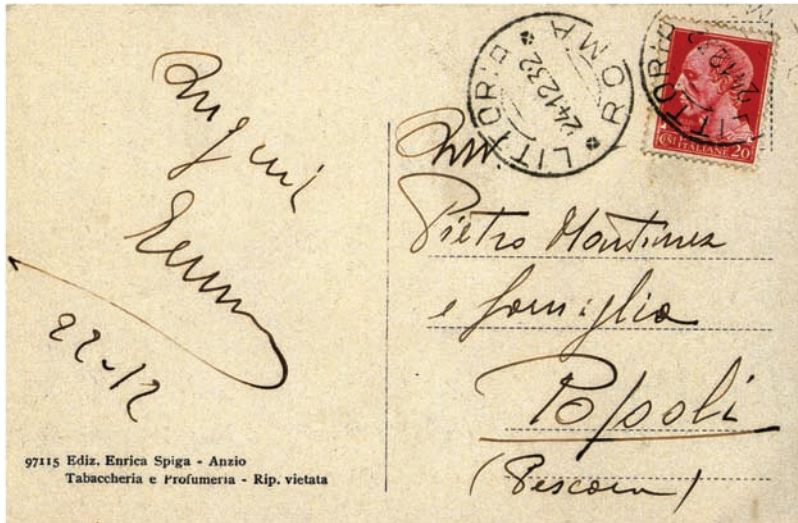 Auguri
22-12
97115 Ediz. Enrica Spiga - Anzio
Tabaccheria e Profumeria - Rip. vietata
LITTORIA * ROMA *
24.12.32
POSTE ITALIANE 20
LITTORIA
24.12.32
Pietro Martinez
e famiglia
Popoli
(Pescara)